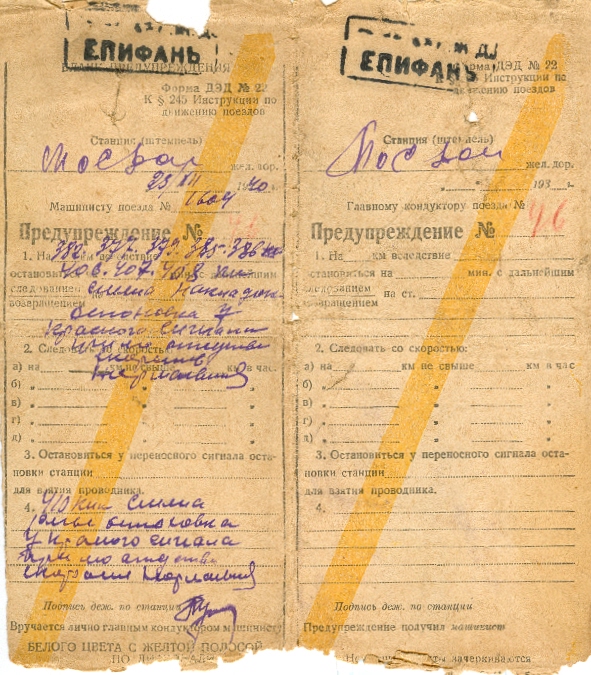 ЕПИФАНЬ
БЛАНК ПРЕДУПРЕЖДЕНИЯ
Форма ДЭД № 22
К § 245 Инструкции по
движению поездов
Станция (штемпель)
жел. дор.
23/XII 1940
Машинисту поезда №
Предупреждение №
382. 377. 379. 385-386
1. На км вследствие
406. 407. 408 км
остановиться дальнейшим
следованием
смена накладок
возвращением
остановка у
красного сигнала
2. Следовать со скоростью
а) на км не выше км в час
б) " " "
в) " " "
г) " " "
д) " " "
3. Остановиться у переносного сигнала оста-
новки станции
для взятия проводника.
4. 410 км смена
рельс остановка
у красного сигнала
при
Подпись деж. по станции
Вручается лично главным кондуктором машинисту
БЕЛОГО ЦВЕТА С ЖЕЛТОЙ ПОЛОСОЙ
ПО ДИАГОНАЛИ
ЕПИФАНЬ
Форма ДЭД № 22
Инструкции по
движению поездов
Станция (штемпель)
жел. дор.
" " 193 г.
Главному кондуктору поезда №
Предупреждение № 46
1. На км вследствие
остановиться на мин. с дальнейшим
следованием на ст.
возвращением
2. Следовать со скоростью:
а) на км не выше км в час
б) " " "
в) " " "
г) " " "
д) " " "
3. Остановиться у переносного сигнала оста-
новки станции
для взятия проводника.
4.
Подпись деж. по станции
Предупреждение получил машинист
зачеркиваются